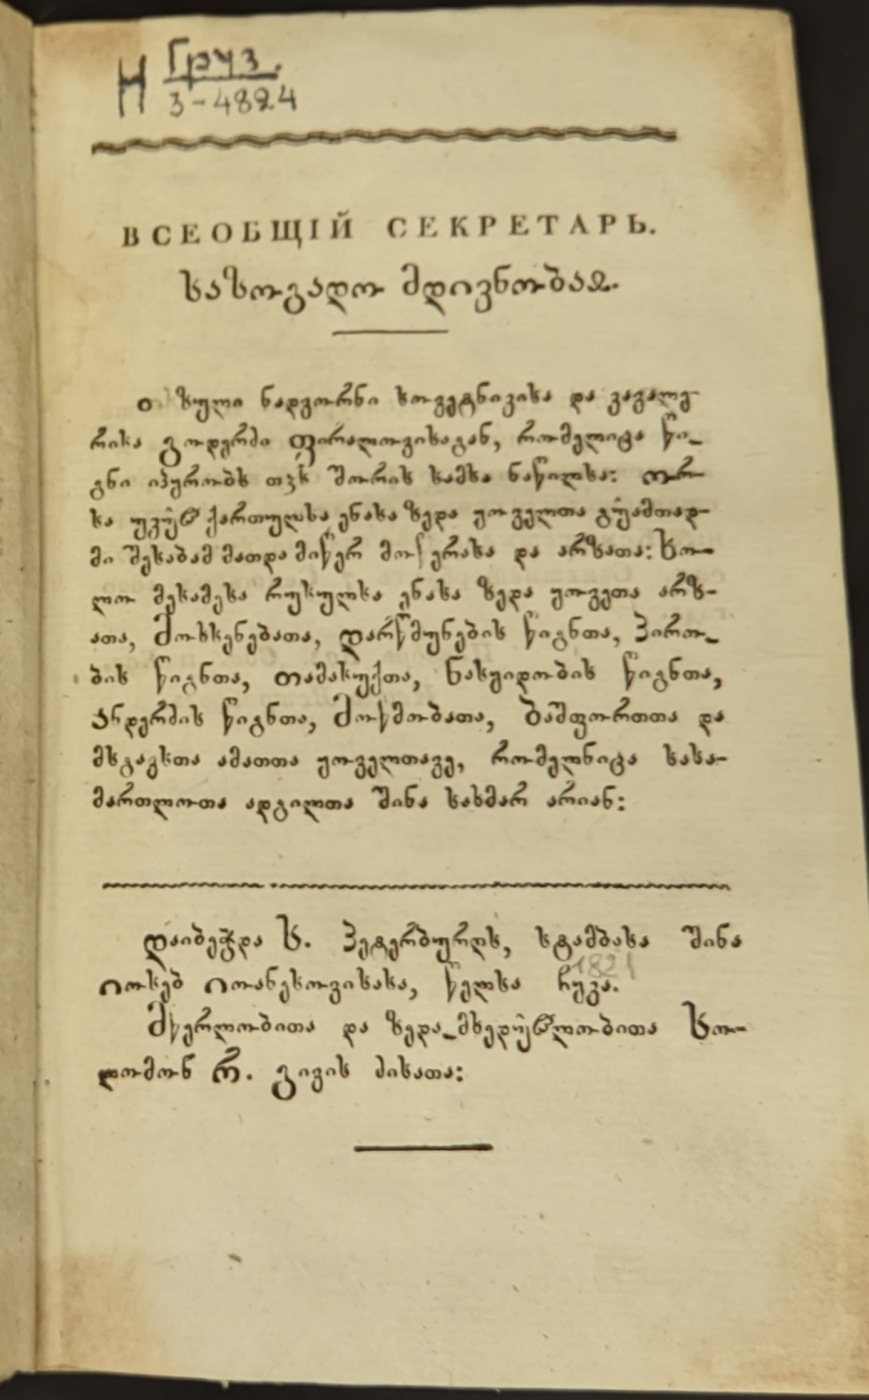 Н Груз
3-4824
ВСЕОБЩІЙ СЕКРЕТАРЬ.
საზოგადო მდივნობაჲ.
ნადვორნი სოვეტნიკისა და კავალე-
რისა გოდერძი ფირალოვისაგან, რომელიცა წი-
გნი იპყრობს თჳს შორის სამსა ნაწილსა: ორ-
სა ქართულსა ენასა ზედა ყოველთა
მი და არზათა: ხო-
ლო მესამესა რუსულსა ენასა ზედა ყოვეთა არზ-
ათა, მოხსენებათა, დარწმუნების წიგნთა, პირო-
ბის წიგნთა, თამასუქთა, ნასყიდობის წიგნთა,
ანდერძის წიგნთა, მოწმობათა, ბაშფორთთა და
მსგავსთა ამათთა ყოველთავე, რომელნიცა სასა-
მართლოთა ადგილთა შინა სახმარ არიან:
დაიბეჭდა ს. პეტერბურღს, სტამბასა შინა
იოსებ იოანესოვისასა, წელსა ჩყკა.
1821
მწერლობითა და ზედა-მხედველობითა სო-
ლომონ რ. გივის ძისათა: